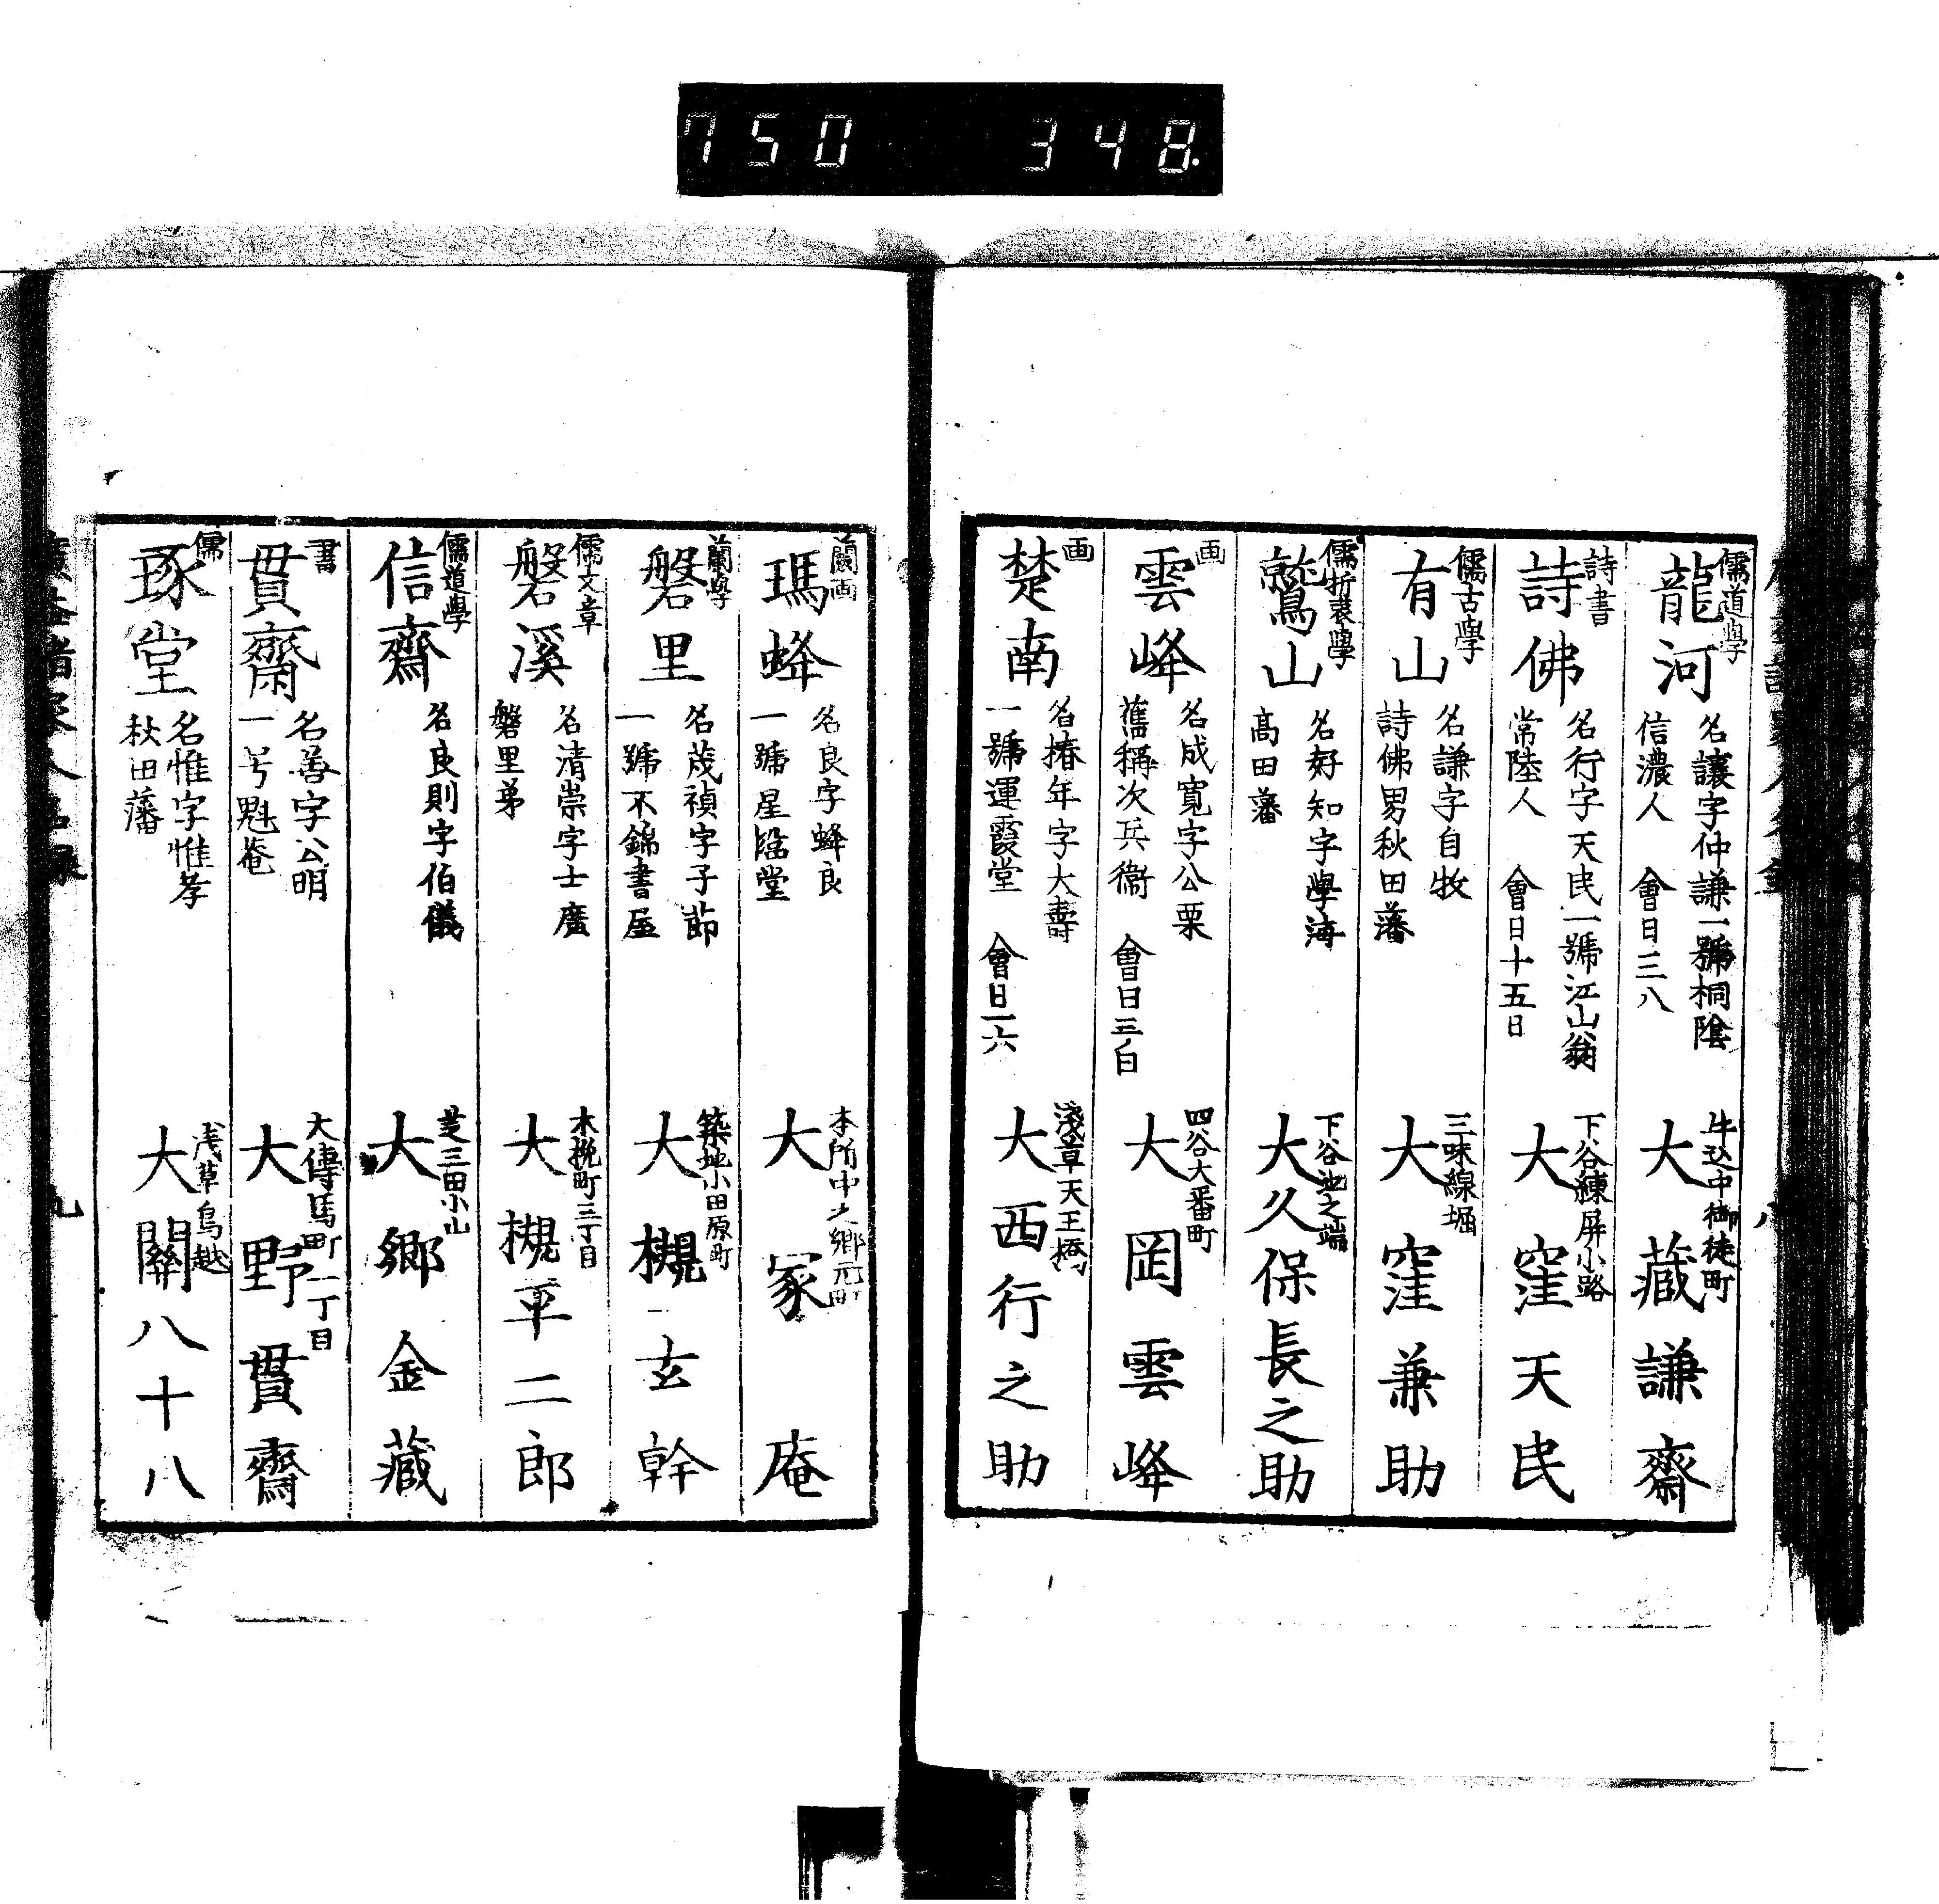 750 348
儒道學
龍河
名讓字仲謙一號桐陰
信濃人 會日三八
牛込中御徒町
大藏謙齋
詩書
詩佛
名行字天民一號江山翁
常陸人 會日十五日
下谷練屏小路
大窪天民
儒古學
有山
名謙字自牧
詩佛男秋田藩
三味線堀
大窪兼助
儒折衷學
鷲山
名好知字學海
高田藩
下谷池之端
大久保長之助
画
雲峰
名成寬字公栗
舊稱次兵衞 會日三白
四谷大番町
大岡雲峰
画
楚南
名椿年字大壽
一號運霞堂 會日一六
淺草天王橋
大西行之助
蘭画
瑪蜂
名良字蜂良
一號星臨堂
本所中之鄉元町
大冢庵
蘭學
磐里
名茂禎字子節
一號不錦書屋
築地小田原町
大槻玄幹
儒文章
磐溪
名清崇字士廣
磐里弟
木挽町三丁目
大槻平二郎
儒道學
信齋
名良則字伯儀
芝三田小山
大鄉金藏
書
貫齋
名善字公明
一号魁菴
大傳馬町一丁目
大野貫齋
儒
琢堂
名惟字惟孝
秋田藩
浅草鳥越
大關八十八
九